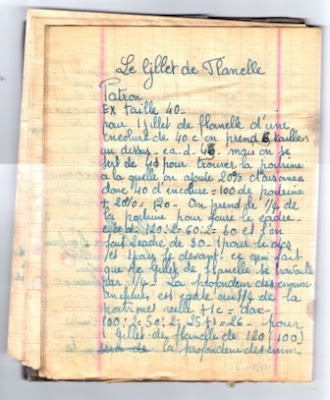 Le Gillet de Flanelle
Patron
EX taille 40-
pour 1 Gillet de flanelle d'une
encolure de 40 c on prend 6 tailles
au dessus - c.a.d. 46. mais on se
sert de 40 pour trouver la poitrine
a la quelle on ajoute 20% d'aisances
donc 40 d'encolure = 100 de poitrine
+ 20% = 120 - On prend le 1/4 de
la poitrine pour faire le cadre
120:2=60:2=30 et l'on
fait 2 cadre de 30 - 1 pour le dos
et 1 pour le devant. ce qui fait
que le Gillet de flanelle se travaille
par 1/4 - La profondeur des emman
chures est égale au 1/4 de la
poitrine réelle + 1c = dac-
100:2=50:2=25+1=26 - pour
1 Gillet de flanelle de 120 (100)
la profondeur des emm